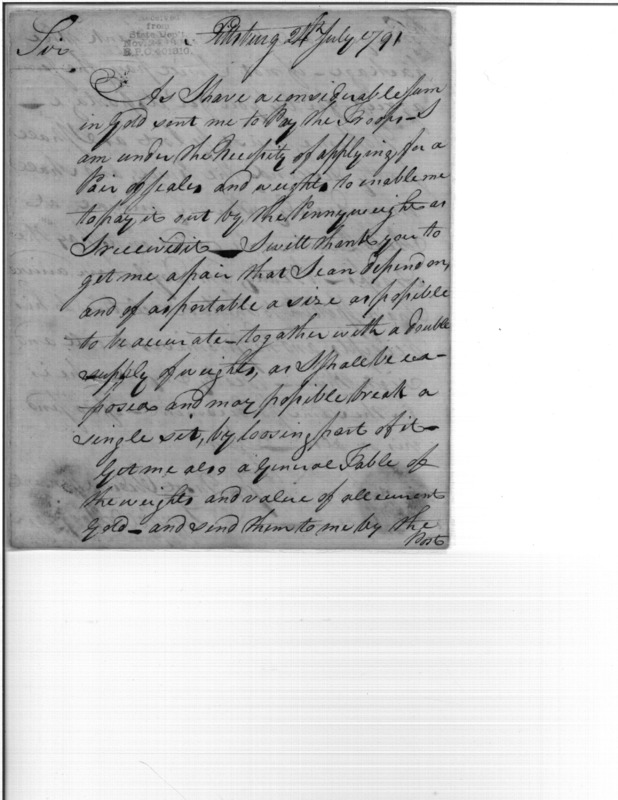 Received
from
State Dep't.
Pittsburg 24th July 1791
Sir,
As I have a considerable Sum
in Gold sent me to Pay the Troops - I
am under the Necessity of applying for a
Pair of scales and weights to enable me
to pay it out by the Pennyweight as
I received it - I will thank you to
get me a pair that I can depend on,
and of as portable a size as possible
to be accurate - together with a double
supply of weights, as I shall be ex-
posed and may possible break a
single set, by loosing part of it -
Get me also a General Table of
the weights and value of all current
Gold - and send them to me by the
Post